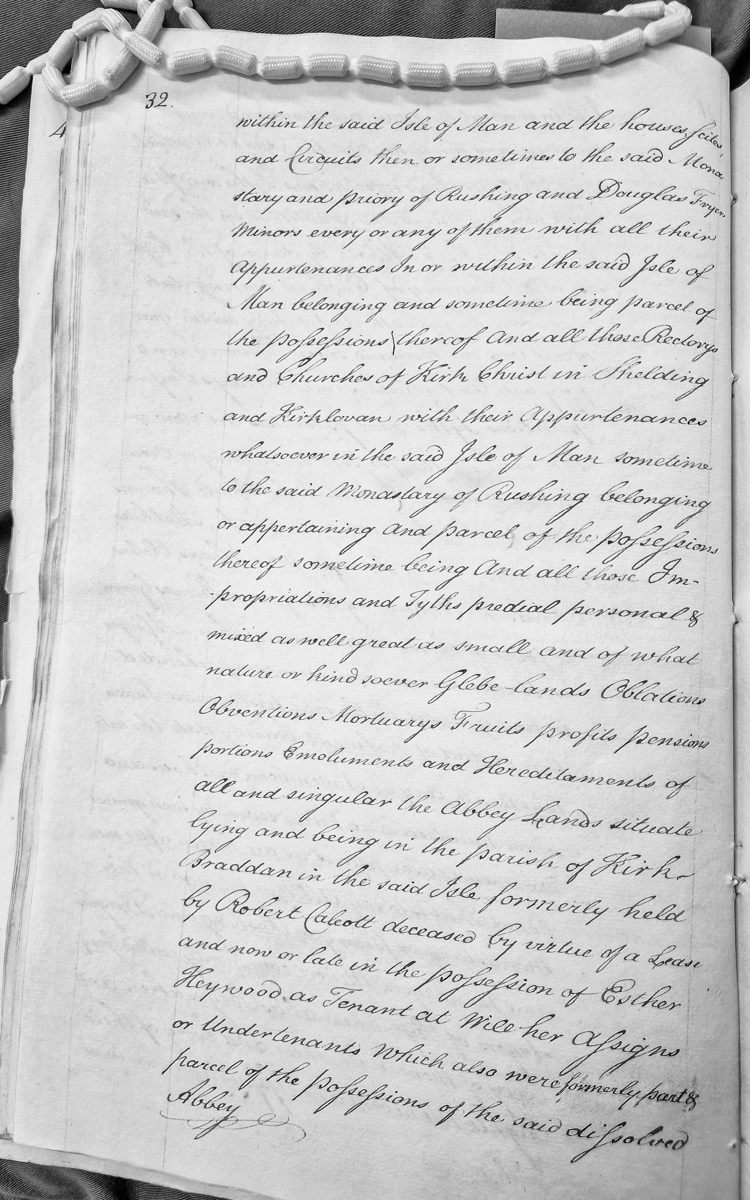 32.
4
within the said Isle of Man and the houses scites
and Circuits then or sometimes to the said Mona
stary and priory of Rushing and Douglas Fryers
Minors every or any of them with all their
Appurtenances In or within the said Isle of
Man belonging and sometime being parcel of
the possessions thereof And all those Rectorys
and Churches of Kirk Christ in Shelding
and Kirklovan with their Appurtenances
whatsoever in the said Isle of Man sometime
to the said Monastary of Rushing belonging
or appertaining and parcel of the possessions
thereof sometime being And all those Im-
-propriations and Tyths predial personal &
mixed as well great as small and of what
nature or kind soever Glebe-lands Oblations
Obventions Mortuarys Fruits profits pensions
portions Emoluments and Hereditaments of
all and singular the Abbey Lands situate
lying and being in the parish of Kirk-
Braddan in the said Isle formerly held
by Robert Calcott deceased by virtue of a Lease
and now or late in the possession of Esther
Heywood as Tenant at Will her Assigns
or Undertenants which also were formerly part &
parcel of the possessions of the said dissolved
Abbey